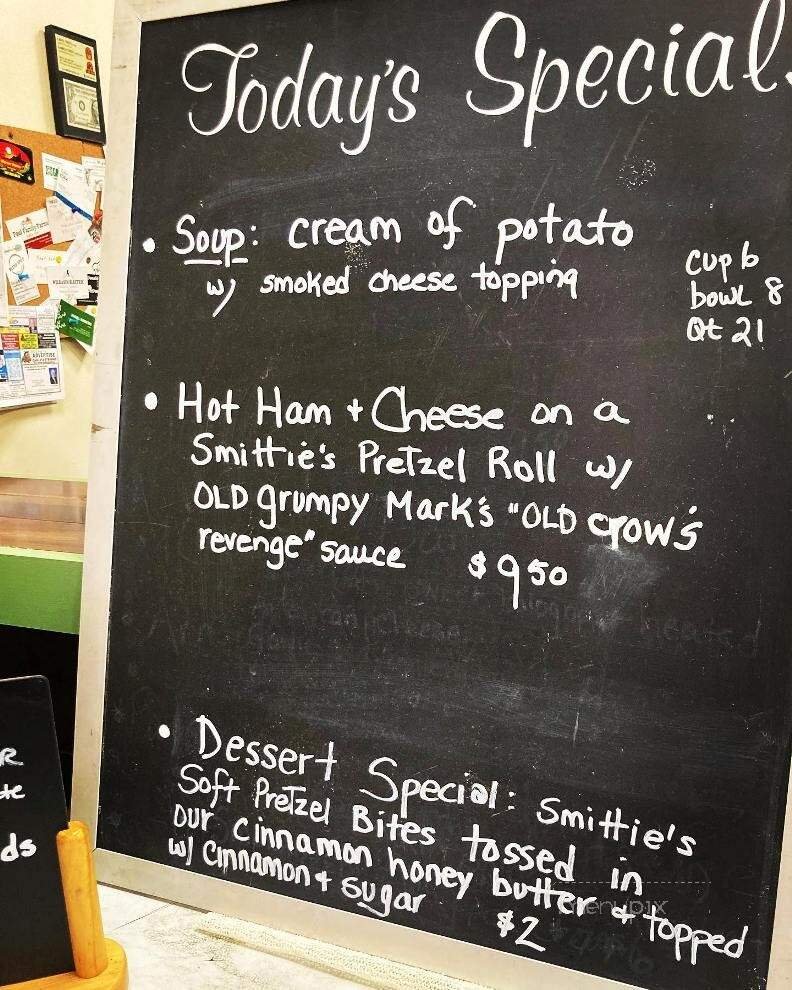 Today's Specials
• Soup: cream of potato
w/ smoked cheese topping
cup 6
bowl 8
Qt 21
• Hot Ham + Cheese on a
Smittie's Pretzel Roll w/
OLD grumpy Mark's "OLD crow's
revenge" sauce $9.50
• Dessert Special: Smittie's
Soft Pretzel Bites tossed in
our cinnamon honey butter & topped
w/ Cinnamon + Sugar $2
menupix
ds